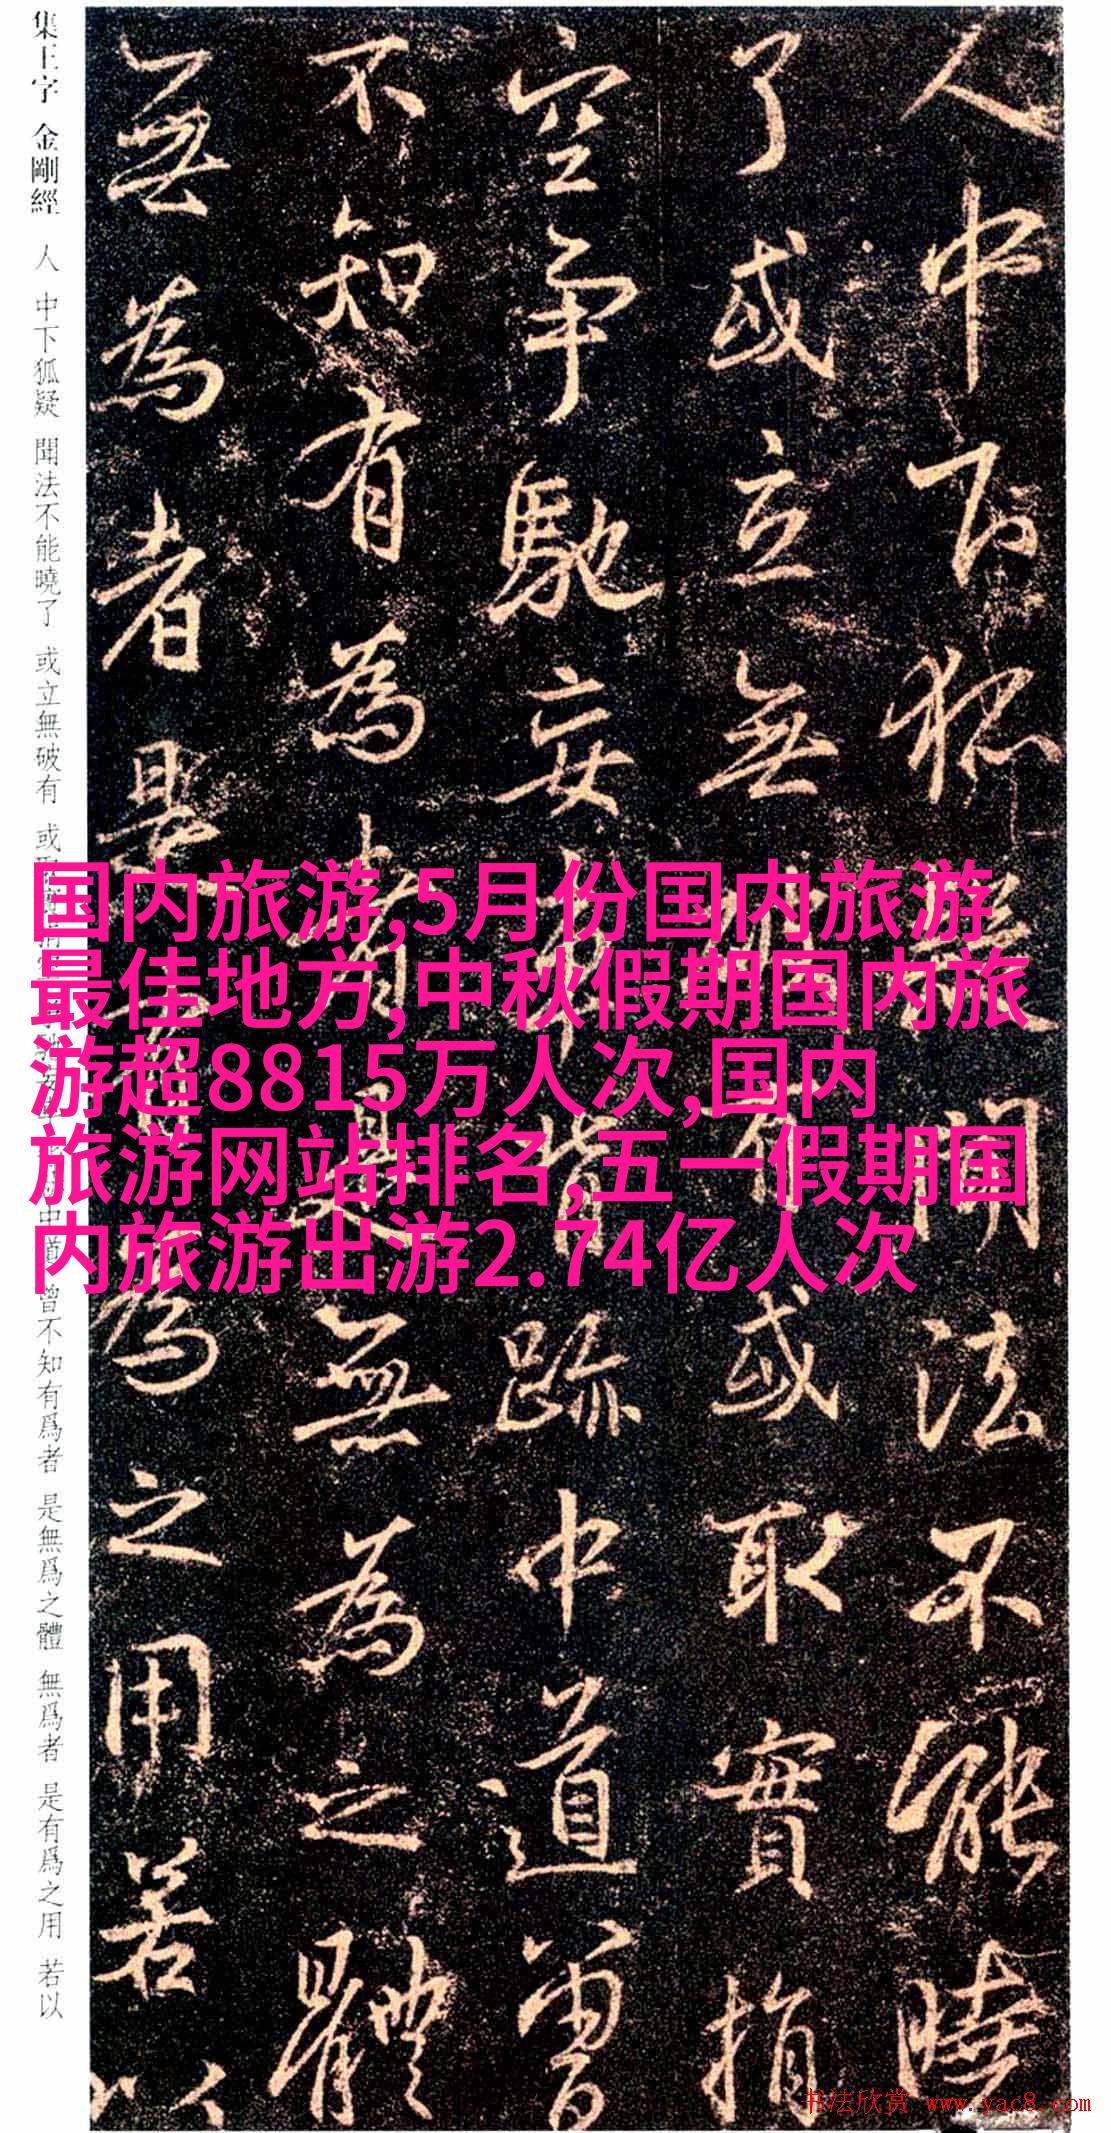 集王字 金剛經 人 中下狐疑 聞法不能曉了 或立無破有 或 中道 曾不知有爲者 是無爲之體 無爲者 是有爲之用 若以
人中下狐疑聞法不能曉
了或立無破有或取實捐
空爭馳妄皆跡中道曾
不知有為者是無為之體
無為者是有為之用若以
国内旅游,5月份国内旅游
最佳地方,中秋假期国内旅
游超8815万人次,国内
旅游网站排名,五一假期国
内旅游出游2.74亿人次
书法欣赏 www.yac8.com